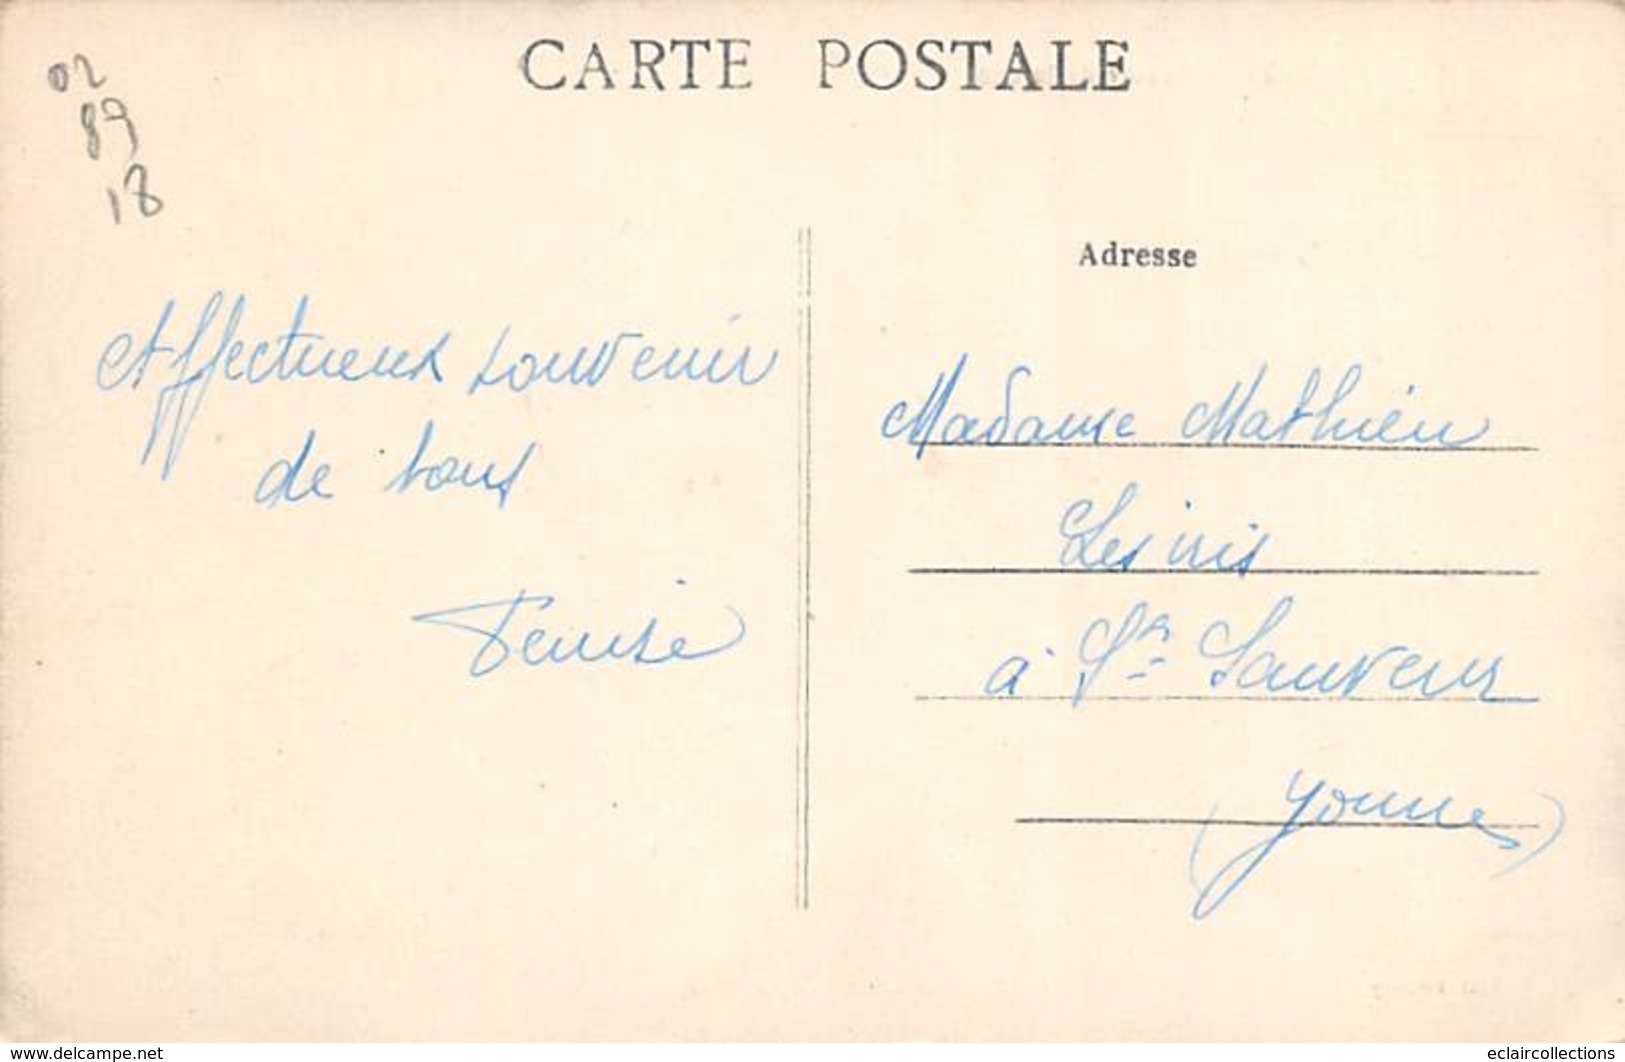 CARTE POSTALE
02
89
18
Adresse
Affectueux souvenir
de tous
Denise
Madame Mathieu
Les iris
à St Sauveur
(Yonne)
www.delcampe.net
eclaircollections